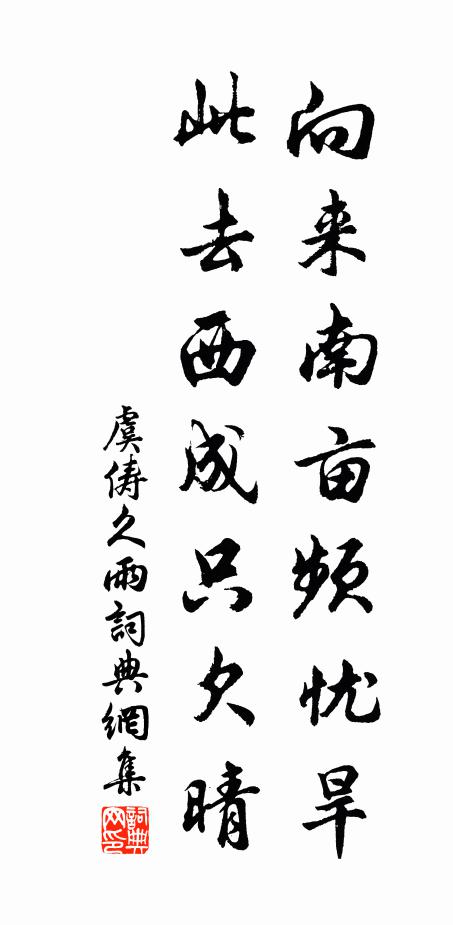 向来南亩频忧旱
此去西成只欠晴
虞俦久雨詞典網集
詞典网印